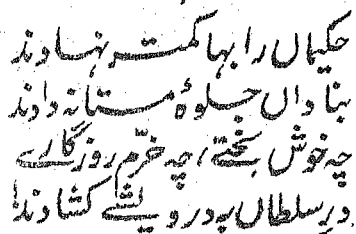 حکیماں را بہا کمتر نہادند
بناداں جلوۂ مستانہ دادند
چہ خوش بختے، چہ خرّم روزگارے
درِ سلطاں بہ درویشے کشادند!